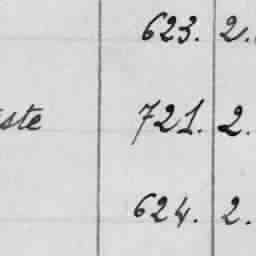 623. 2.
ste 721. 2.
624. 2.